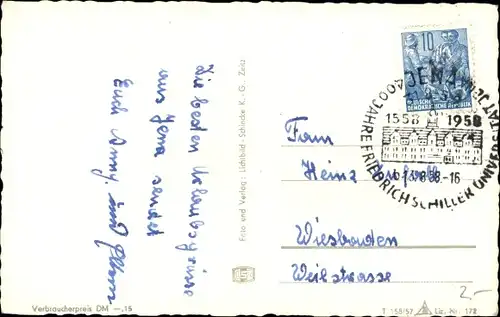 Die besten Urlaubsgrüsse
aus Jena sendet
Euch Anny und
Foto und Verlag: Lichtbild-Schincke K.-G., Zeitz
Verbraucherpreis DM —.15
10
DEUTSCHE
DEMOKRATISCHE REPUBLIK
JENA
400 JAHRE FRIEDRICH SCHILLER UNIVERSITÄT JENA
1558 1958
Fam
Heinz
Wiesbaden
Weilstrasse
2.-
T 158/57 Liz. Nr. 172